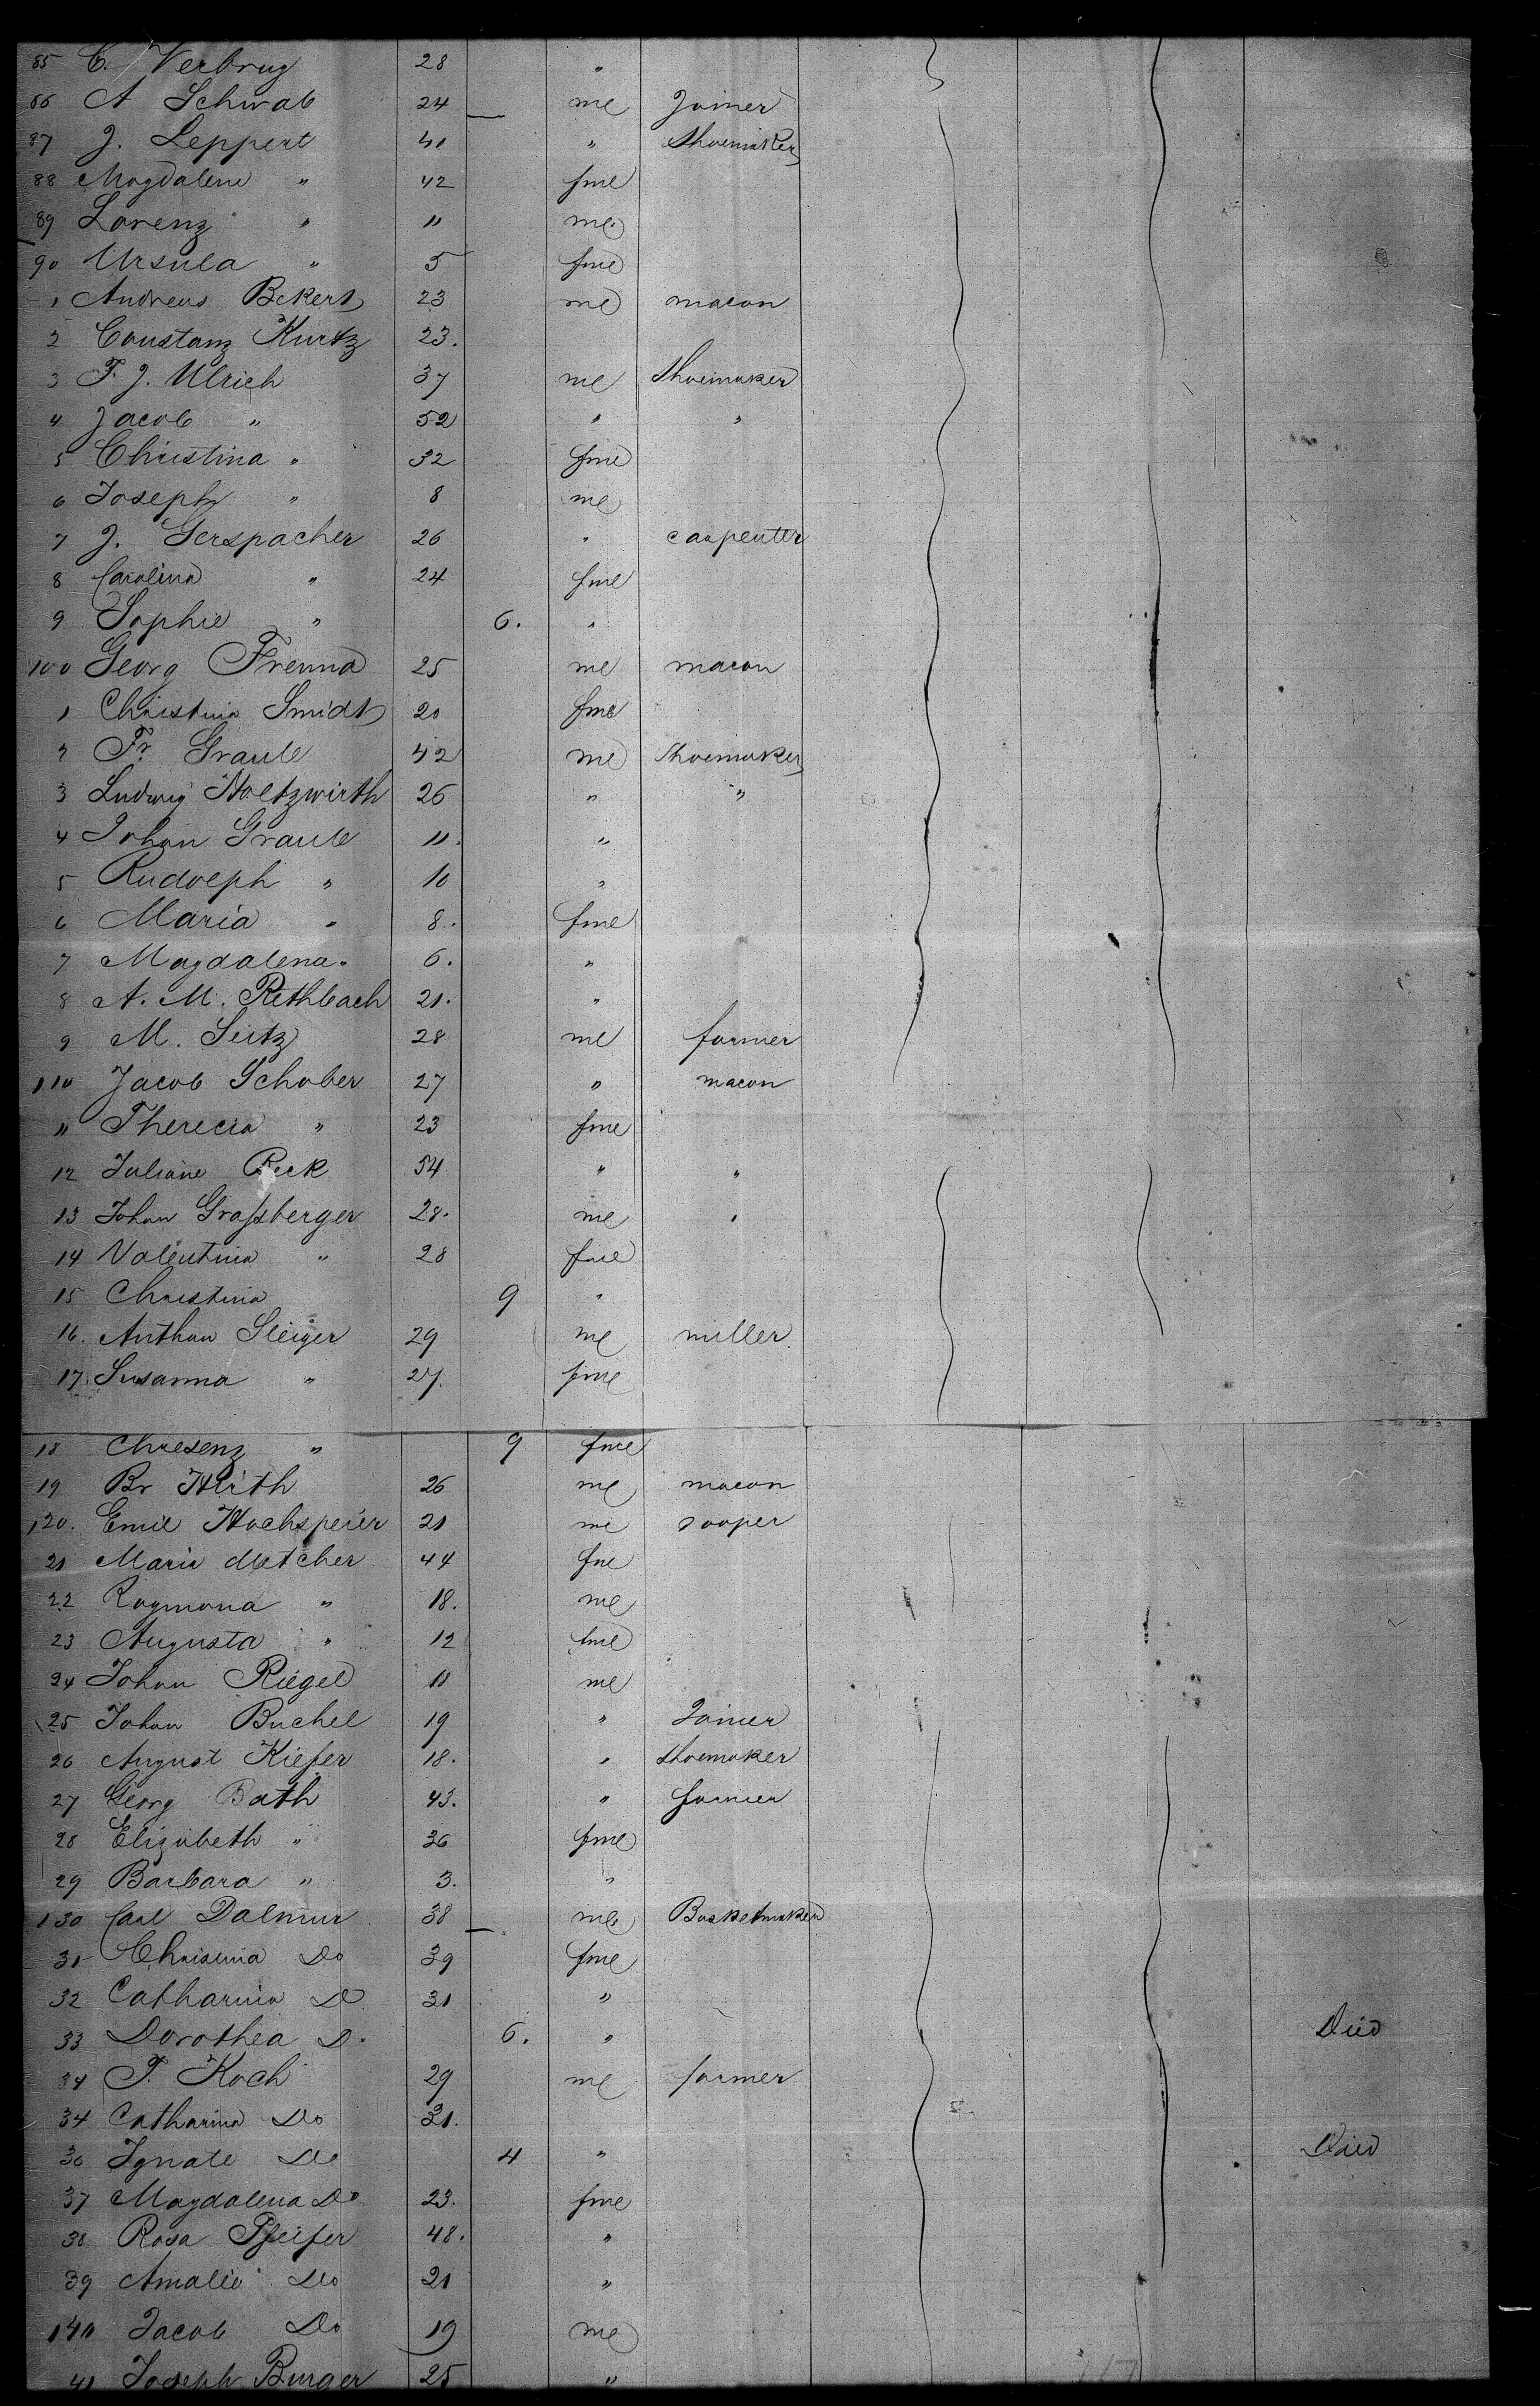 85 C. Verbrug 28 "
86 A Schwab 24 me Joiner
87 J. Leppert 41 " Shoemaker
88 Magdalene " 42 fme
89 Lorenz " 11 me
90 Ursula " 5 fme
1 Andreas Bekert 23 me macon
2 Constanz Kurtz 23.
3 F. J. Ulrich 37 me Shoemaker
4 Jacob " 52 " "
5 Christina " 32 fme
6 Joseph " 8 me
7 J. Gerspacher 26 " carpenter
8 Carolina " 24 fme
9 Sophie " 6. "
100 Georg Frenna 25 me macon
1 Christina Smidt 20 fme
2 Fr. Graule 42 me Shoemaker
3 Ludwig Holtzwirth 26 " "
4 Johan Graule 11. "
5 Rudolph " 10 "
6 Maria " 8. fme
7 Magdalena " 6. "
8 A. M. Rethbach 21. "
9 M. Seitz 28 me farmer
110 Jacob Schober 27 " macon
11 Therecia " 23 fme
12 Juliane Reck 54 " "
13 Johan Graſsberger 28. me "
14 Valentina " 28 fme
15 Christina 9 "
16. Anthon Sleiger 29 me miller
17. Susanna " 27. fme
18 Chresenz " 9 fme
19 Br Hirth 26 me macon
120. Emil Hochspeier 21 me cooper
21 Maria Metcher 44 fme
22 Raymona " 18. me
23 Augusta " 12 fme
24 Johan Riegel 11 me
25 Johan Buchel 19 " Joiner
26 August Kiefer 18. " Shoemaker
27 Georg Bath 43. " farmer
28 Elizabeth " 36 fme
29 Barbara " 3. "
130 Carl Dalmur 38 me Basketmaker
31 Chrisinia Do 39 fme
32 Catharina D 31 "
33 Dorothea D. 6. " Died
34 F. Koch 29 me farmer
34 Catharina Do 31.
36 Ignate Do 4 " Died
37 Magdalena Do 23. fme
38 Rosa Pfeifer 48. "
39 Amalie Do 21 "
140 Jacob Do 19 me
41 Joseph Burger 25 "